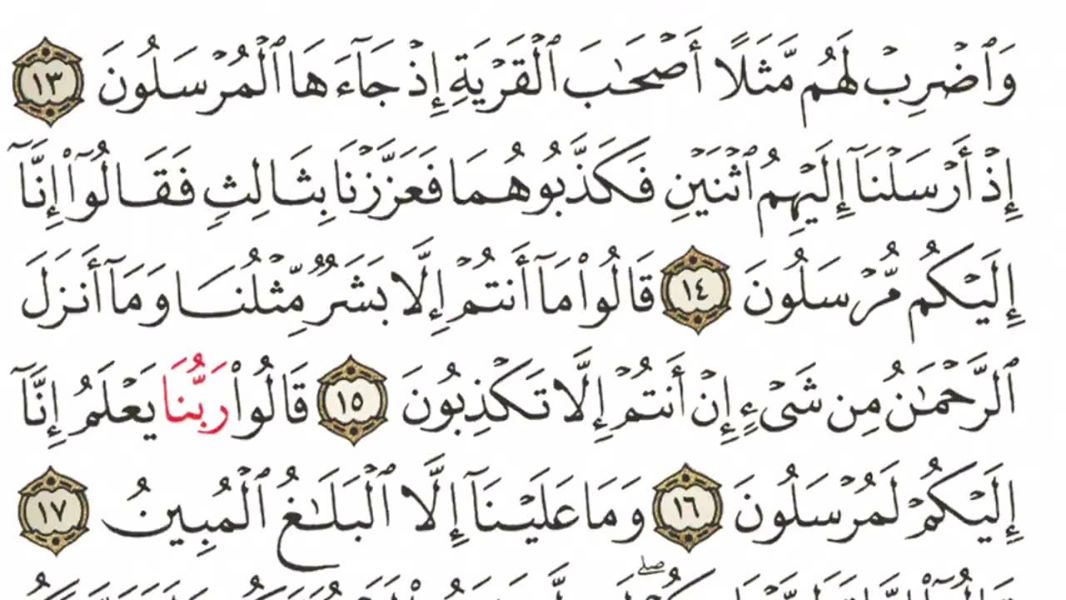 وَٱضۡرِبۡ لَهُم مَّثَلًا أَصۡحَٰبَ ٱلۡقَرۡيَةِ إِذۡ جَآءَهَا ٱلۡمُرۡسَلُونَ ١٣
إِذۡ أَرۡسَلۡنَآ إِلَيۡهِمُ ٱثۡنَيۡنِ فَكَذَّبُوهُمَا فَعَزَّزۡنَا بِثَالِثٖ فَقَالُوٓاْ إِنَّآ
إِلَيۡكُم مُّرۡسَلُونَ ١٤ قَالُواْ مَآ أَنتُمۡ إِلَّا بَشَرٞ مِّثۡلُنَا وَمَآ أَنزَلَ
ٱلرَّحۡمَٰنُ مِن شَيۡءٍ إِنۡ أَنتُمۡ إِلَّا تَكۡذِبُونَ ١٥ قَالُواْ رَبُّنَا يَعۡلَمُ إِنَّآ
إِلَيۡكُمۡ لَمُرۡسَلُونَ ١٦ وَمَا عَلَيۡنَآ إِلَّا ٱلۡبَلَٰغُ ٱلۡمُبِينُ ١٧